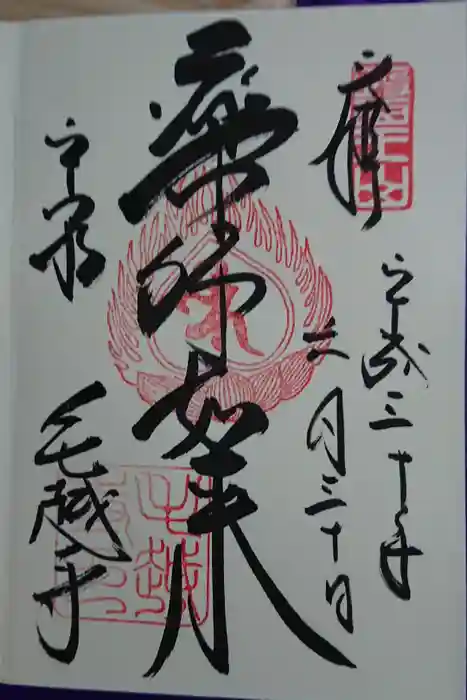 奉拝
平成三十年
六月三十日
薬師如来
平泉
毛越寺